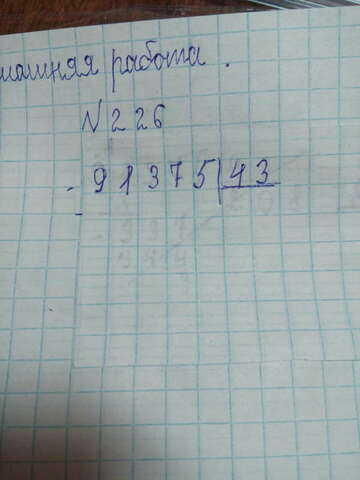 машняя работа.
N226
- 91375 43
-